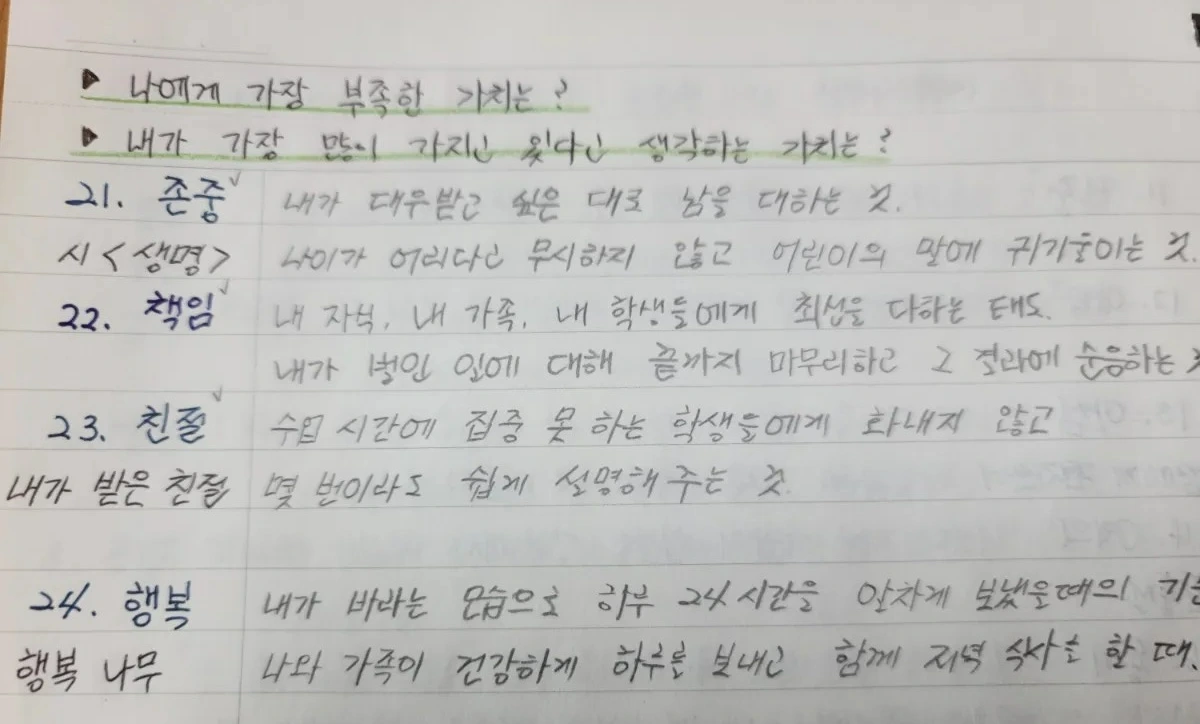 ▶ 나에게 가장 부족한 가치는?
▶ 내가 가장 많이 가지고 있다고 생각하는 가치는?
21. 존중✓ 내가 대우받고 싶은 대로 남을 대하는 것.
시<생명> 나이가 어리다고 무시하지 않고 어린이의 말에 귀기울이는 것.
22. 책임✓ 내 자식, 내 가족, 내 학생들에게 최선을 다하는 태도.
내가 벌인 일에 대해 끝까지 마무리하고 그 결과에 순응하는
23. 친절✓ 수업 시간에 집중 못 하는 학생들에게 화내지 않고
내가 받은 친절 몇 번이라도 쉽게 설명해 주는 것.
24. 행복 내가 바라는 모습으로 하루 24시간을 알차게 보냈을때의
행복 나무 나와 가족이 건강하게 하루를 보내고 함께 저녁 식사를 할 때.